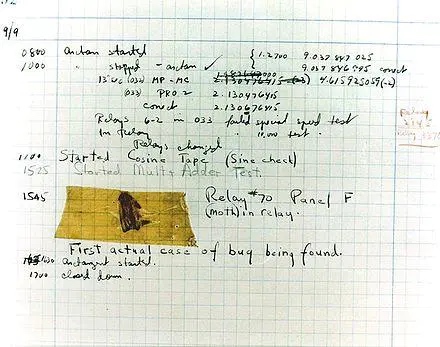 9/9
0800 Antan started
1000 " stopped - antan ✓ { 1.2700 9.037 847 025
9.037 846 995 correct
13"uc (032) MP - MC 2.130476415 (-3) 4.615925059(-2)
(033) PRO 2 2.130476415
correct 2.130676415
Relays 6-2 in 033 failed special speed test
in relay " 10.000 test.
Relay
Relays changed
1100 Started Cosine Tape (Sine check)
1525 Started Mult+Adder Test.
1545 Relay #70 Panel F
(moth) in relay.
First actual case of bug being found.
1630 antangent started.
1700 closed down.